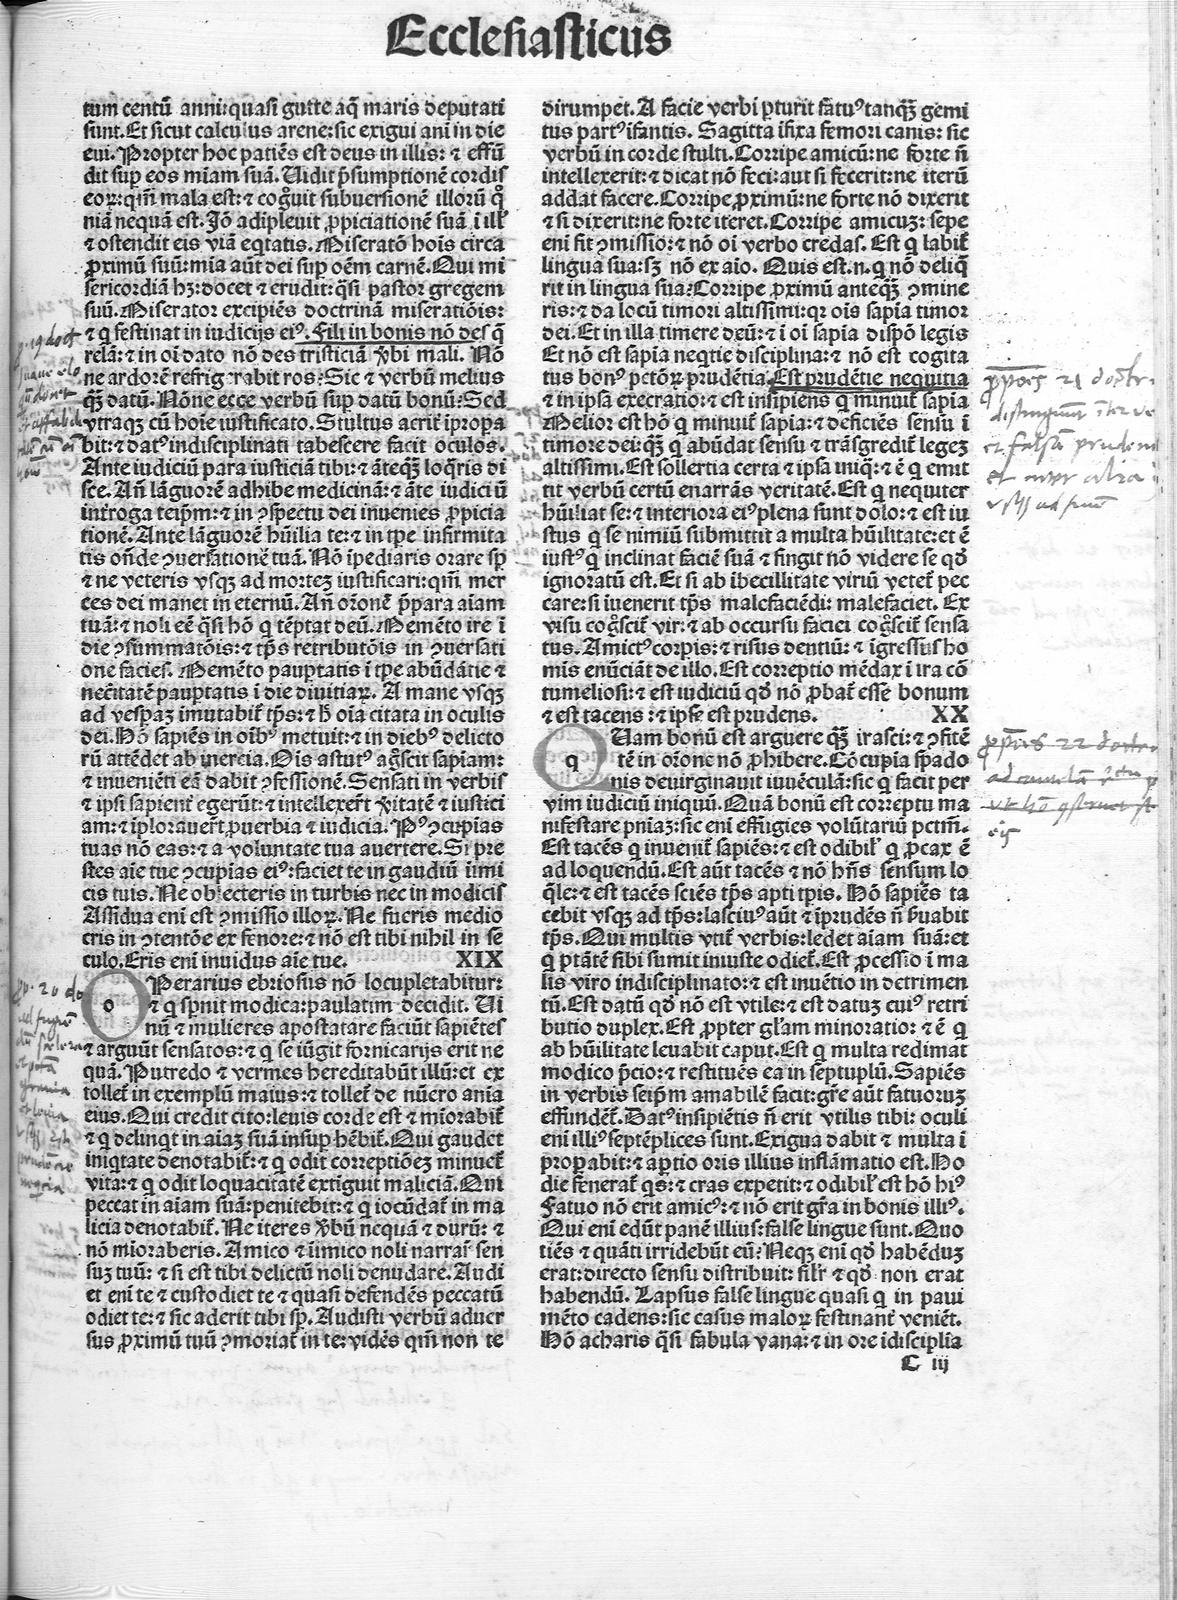 Ecclesiasticus
tum centū anni:quasi gutte aq̄ maris deputati
sunt.Et sicut calculus arene:sic exigui ani in die
eui.Propter hoc patiēs est deus in illis: ⁊ effū
dit sup eos miam suā.Uidit p̄sumptionē cordis
eoꝝ:qm̄ mala est:⁊ cog̊uit subuersionē illorū
niā nequā est.Jō adipleuit ꝓpiciationē suā ī ill
⁊ ostendit eis viā eq̄tatis.Miseratō hoīs circa
ꝓximū suū:mīa aūt dei sup oēm carnē.Qui mi
sericordiā hꝫ:docet ⁊ erudit:q̄si pastor gregem
suū.Miserator excipiēs doctrinā miseratiōis:
⁊ q festinat in iudicijs eiꝰ.Fili in bonis nō des q̄
relā:⁊ in oī dato nō des tristiciā v̄bi mali. Nō
ne ardorē refrigerabit ros:Sic ⁊ verbū melius
q̄ꝫ datū.Nōne ecce verbū sup datū bonū:Sed
vtraqꝫ cū hoīe iustificato.Stultus acrit ipropa
bit:⁊ datꝰ indisciplinati tabescere facit oculos.
Ante iudiciū para iusticiā tibi:⁊ āteqꝫ loq̄ris di
sce.Añ lāguorē adhibe medicinā:⁊ āte iudiciū
introga teipm̄:⁊ in ꝯspectu dei inuenies ꝓpicia
tionē.Ante lāguorē hūilia te:⁊ in tpe infirmita
tis oñde ꝯuersationē tuā.Nō ipediaris orare sp
⁊ ne veteris vsqꝫ ad morteꝫ iustificari:qm̄ mer
ces dei manet in eternū.Añ orōnē p̄para aīam
tuā:⁊ noli eē q̄si hō q tēptat deū.Memēto ire ī
die ꝯsummatōis:⁊ tp̄s retributōis in ꝯuersati
one faciei.Memēto pauptatis ī tpe abūdātie ⁊
necitatē pauptatis ī die diuitiaꝝ. A mane vsqꝫ
ad vesperaꝫ imutabit tp̄s:⁊ h̄ oīa citata in oculis
dei.Hō sapiēs in oībꝰ metuit:⁊ in diebꝰ delicto
rū attēdet ab inercia.Oīs astutꝰ ag̊scit sapiam:
⁊ inueniēti eā dabit ꝯfessionē.Sensati in verbis
⁊ ipsi sapient egerūt:⁊ intellexert v̄itatē ⁊ iustici
am:⁊ iplorauert ꝓuerbia ⁊ iudicia. Pꝰ ꝯcupias
tuas nō eas:⁊ a voluntate tua auertere.Si pre
stes aīe tue ꝯcupias eiꝰ:faciet te in gaudiū iimi
cis tuis.Ne oblecteris in turbis nec in modicis
Assidua eni est ꝯmissio illoꝝ.Ne fueris medio
cris in ꝯtentōe ex fenore:⁊ nō est tibi nihil in se
culo.Eris eni inuidus aīe tue. XIX
o Perarius ebriosus nō locupletabitur:
⁊ q spnit modica:paulatim decidit. Ui
nū ⁊ mulieres apostatare faciūt sapiētes
⁊ arguūt sensatos:⁊ q se iūgit fornicarijs erit ne
quā. Putredo ⁊ vermes hereditabūt illū:et ex
tollet in exemplū maius:⁊ tollet de nūero anīa
eius.Qui credit cito:leuis corde est ⁊ miorabit
⁊ q delinqt in aīaꝫ suā insup hēbit.Qui gaudet
iniqtate denotabit:⁊ q odit correptiōeꝫ minuet
vita:⁊ q odit loquacitatē extiguit maliciā.Qui
peccat in aīam suā:penitebit:⁊ q iocūdat in ma
licia denotabit. Ne iteres v̄bū nequā ⁊ durū: ⁊
nō mioraberis. Amico ⁊ iimico noli narrare sen
suꝫ tuū: ⁊ si est tibi delictū noli denudare.Audi
et eni te ⁊ custodiet te ⁊ quasi defendēs peccatū
odiet te:⁊ sic aderit tibi sp. Audisti verbū aduer
sus ꝓximū tuū ꝯmoriat in te: vidēs qm̄ non te
dirumpet.A facie verbi pturit fatuꝰ tanqꝫ gemi
tus partꝰ ifantis. Sagitta ifixa femori canis: sic
verbū in corde stulti.Corripe amicū:ne forte ñ
intellexerit:⁊ dicat nō feci:aut si fecerit:ne iterū
addat facere.Corripe ꝓximū:ne forte nō dixerit
⁊ si dixerit:ne forte iteret.Corripe amicuꝫ: sepe
eni fit ꝯmissio:⁊ nō oī verbo credas. Est q labit
lingua sua:sꝫ nō ex aīo. Quis est.n.q nō deliq̄
rit in lingua sua:Corripe ꝓximū anteqꝫ ꝯmine
ris:⁊ da locū timori altissimi:qr oīs sapīa timor
dei.Et in illa timere deū:⁊ ī oī sapīa dispō legis
Et nō est sapīa neqtie disciplina:⁊ nō est cogita
tus bonꝰ pctōꝝ prudētia.Est prudētie nequitia
⁊ in ipsa execratio:⁊ est insipiens q minuit sapīa
Melior est hō q minuit sapīa:⁊ deficiēs sensu ī
timore dei:q̄ꝫ q abūdat sensu ⁊ trāsgredit legeꝫ
altissimi.Est sollertia certa ⁊ ipsa iniq̄:⁊ ē q emit
tit verbū certū enarrās veritatē.Est q nequiter
hūiliat se:⁊ interiora eiꝰ plena sunt dolo:⁊ est iu
stus q se nimiū submittit a multa hūilitate:et ē
iustꝰ q inclinat faciē suā ⁊ fingit nō videre se qd̄
ignoratū est.Et si ab ibecillitate viriū vetet pec
care:si iuenerit tp̄s malefaciēdi:malefaciet. Ex
visu cog̊scit vir:⁊ ab occursu faciei cog̊scit sensa
tus.Amictꝰ corpis:⁊ risus dentiū:⁊ igressus ho
mis enūciāt de illo.Est correptio mēdax ī ira cō
tumeliosi:⁊ est iudiciū qd̄ nō ꝓbat esse bonum
⁊ est tacens:⁊ ipse est prudens. XX
q Uam bonū est arguere q̄ꝫ irasci:⁊ ꝯfitē
tē in oīone nō ꝓhibere.Cōcupia spado
nis deuirginauit iuuēculā:sic q facit per
vim iudiciū iniquū.Quā bonū est correptū ma
nifestare pniaꝫ:sic eni effugies volūtariū pctm̄.
Est tacēs q inuenit sapiēs:⁊ est odibil q ꝓcax ē
ad loquendū.Est aūt tacēs ⁊ nō hn̄s sensum lo
q̄le:⁊ est tacēs sciēs tp̄s apti tpis. Hō sapiēs ta
cebit vsqꝫ ad tp̄s:lasciuꝰ aūt ⁊ iprudēs ñ ẜuabit
tp̄s.Qui multis vtit verbis:ledet aīam suā:et
q ptātē sibi sumit iniuste odiet.Est ꝓcessio ī ma
lis viro indisciplinato:⁊ est inuētio in detrimen
tū.Est datū qd̄ nō est vtile:⁊ est datuꝫ cuiꝰ retri
butio duplex.Est ꝓpter glam minoratio: ⁊ ē q
ab hūilitate leuabit caput.Est q multa redimat
modico p̄cio:⁊ restituēs ea in septuplū.Sapiēs
in verbis seipm̄ amabilē facit:gre aūt fatuoruꝫ
effundēt.Datꝰ insipiētis ñ erit vtilis tibi: oculi
eni illiꝰ septēplices sunt.Exigua dabit ⁊ multa ī
properabit:⁊ aptio oris illius inflāmatio est.Ho
die fenerat qs:⁊ cras expetit:⁊ odibil est hō hiꝰ
Fatuo nō erit amicꝰ:⁊ nō erit gra in bonis illiꝰ.
Qui eni edūt panē illius:false lingue sunt.Quo
tiēs ⁊ quāti irridebūt eū:Neqꝫ eni qd̄ habēduꝫ
erat:directo sensu distribuit: silr ⁊ qd̄ non erat
habendū. Lapsus false lingue quasi q in paui
mēto cadens:sic casus maloꝝ festinant veniēt.
Hō acharis q̄si fabula vana:⁊ in ore idisciplia
C iij